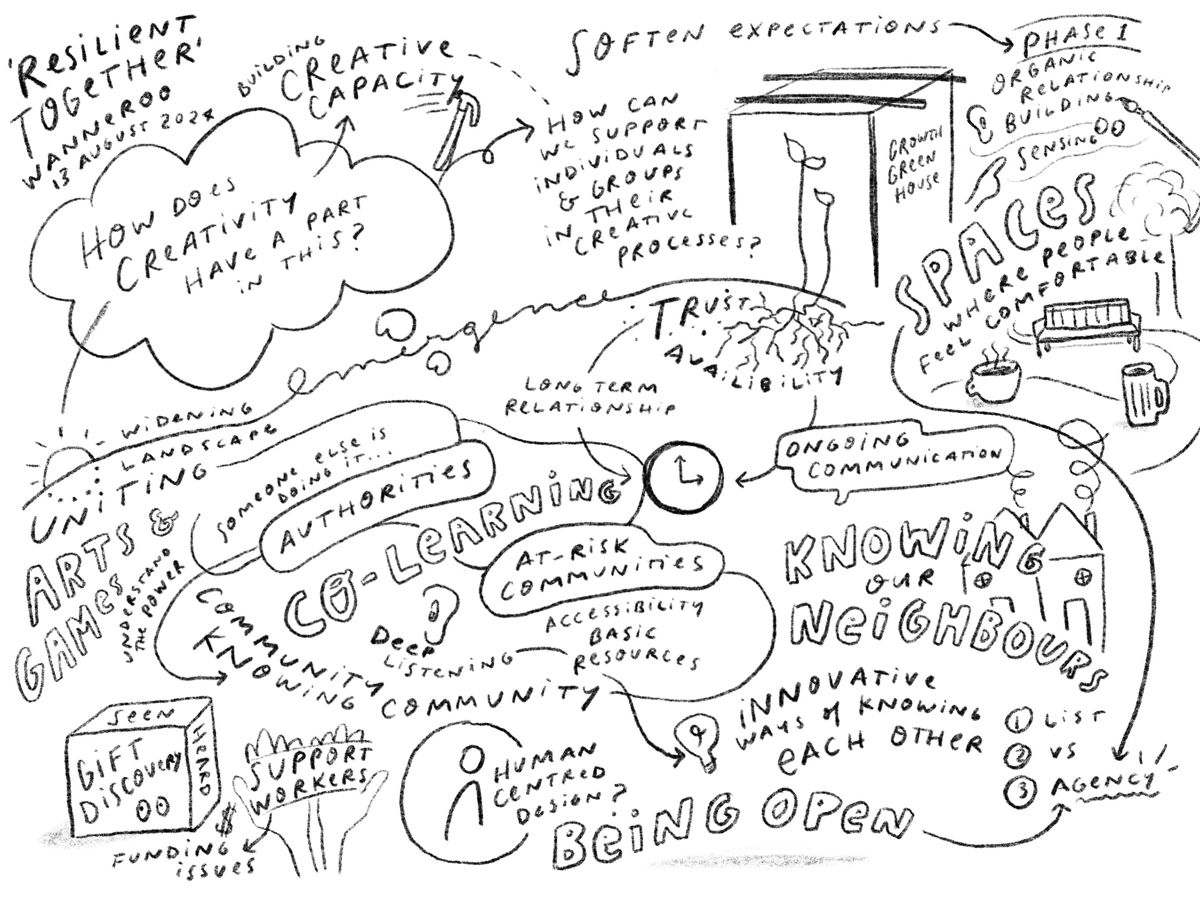 'RESILIENT
TOGETHER'
WANNEROO
13 AUGUST 2024
BUILDING
CREATIVE
CAPACITY
HOW DOES
CREATIVITY
HAVE A PART
IN THIS?
HOW CAN
WE SUPPORT
INDIVIDUALS
& GROUPS
IN THEIR
CREATIVE
PROCESSES?
SOFTEN EXPECTATIONS
PHASE 1
ORGANIC
RELATIONSHIP
BUILDING
SENSING
GROWTH
GREEN
HOUSE
SPACES
WHERE PEOPLE
FEEL COMFORTABLE
emergence
TRUST
AVAILIBILITY
LONG TERM
RELATIONSHIP
ONGOING
COMMUNICATION
WIDENING
LANDSCAPE
UNITING
ARTS &
GAMES
UNDERSTAND
THE POWER
SOMEONE ELSE IS
DOING IT...
AUTHORITIES
CO-LEARNING
AT-RISK
COMMUNITIES
ACCESSIBILITY
BASIC
RESOURCES
DEEP
LISTENING
COMMUNITY
KNOWING COMMUNITY
KNOWING
OUR
NEIGHBOURS
INNOVATIVE
WAYS OF KNOWING
EACH OTHER
1 LIST
2 VS
3 AGENCY
SEEN
HEARD
GIFT
DISCOVERY
SUPPORT
WORKERS
$
FUNDING
ISSUES
HUMAN
CENTRED
DESIGN?
BEING OPEN